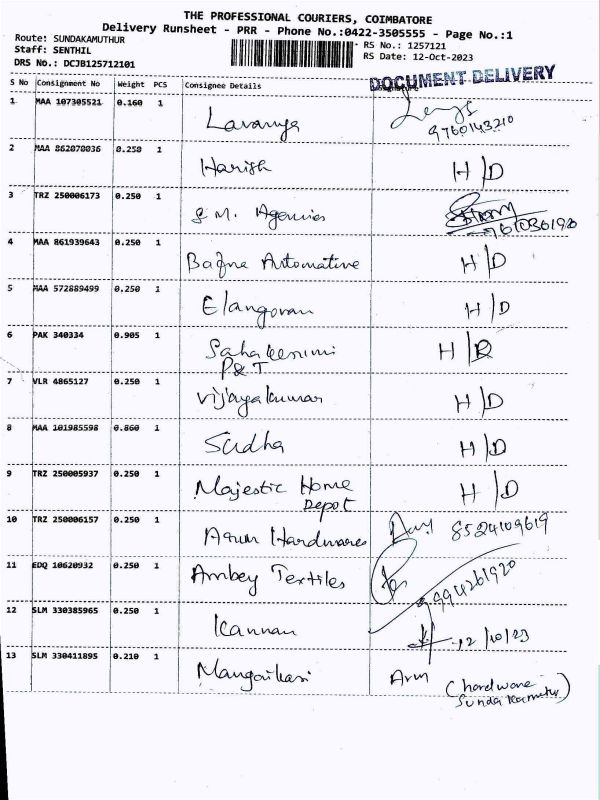 THE PROFESSIONAL COURIERS, COIMBATORE
Delivery Runsheet - PRR - Phone No.:0422-3505555 - Page No.:1
Route: SUNDAKAMUTHUR
Staff: SENTHIL
RS No.: 1257121
DRS No.: DCJB125712101
RS Date: 12-Oct-2023
DOCUMENT DELIVERY
S No Consignment No Weight PCS Consignee Details
1 MAA 107305521 0.160 1 Lavanya
9760143210
2 MAA 862070036 0.250 1 Harish H/D
3 TRZ 250006173 0.250 1 S.M. Agencies
4 MAA 861939643 0.250 1 Bafna Automative H/D
5 MAA 572889499 0.250 1 Elangovan H/D
6 PAK 340334 0.905 1 H/D
P&T
7 VLR 4865127 0.250 1 Vijayakumar H/D
8 MAA 101985598 0.860 1 Sudha H/D
9 TRZ 250005937 0.250 1 Majestic Home H/D
Depot
10 TRZ 250006157 0.250 1 Arun Hardwares 8524109619
11 EDQ 10620932 0.250 1 Ambey Textiles
9994261920
12 SLM 330385965 0.250 1 Kannan 12/10/23
13 SLM 330411895 0.210 1 Mangaikasi Arun
(hardware
Sundakamuthur)